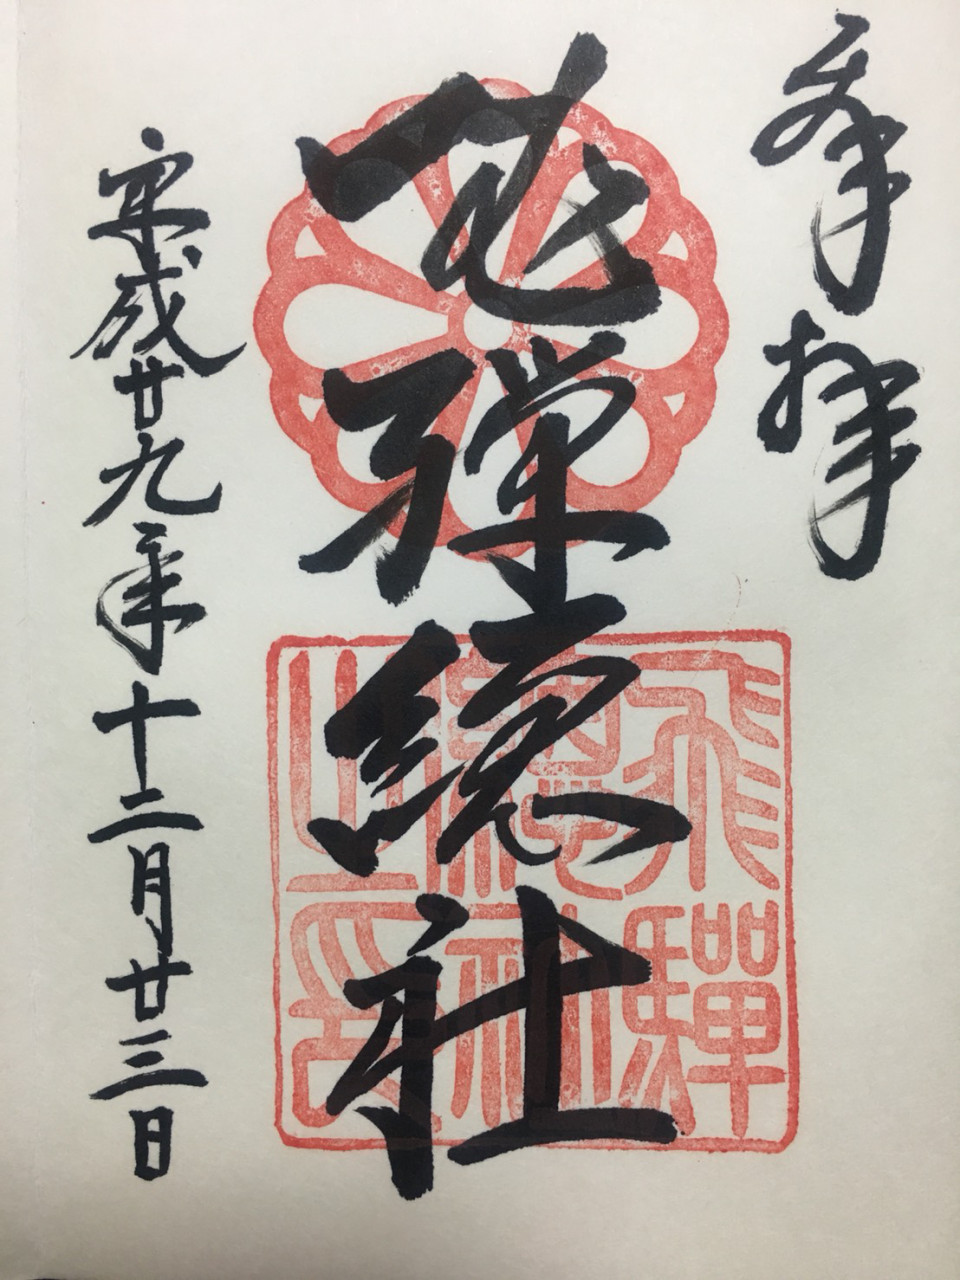 奉拝
飛弾總社
飛驒
總社
之印
平成廿九年十二月廿三日